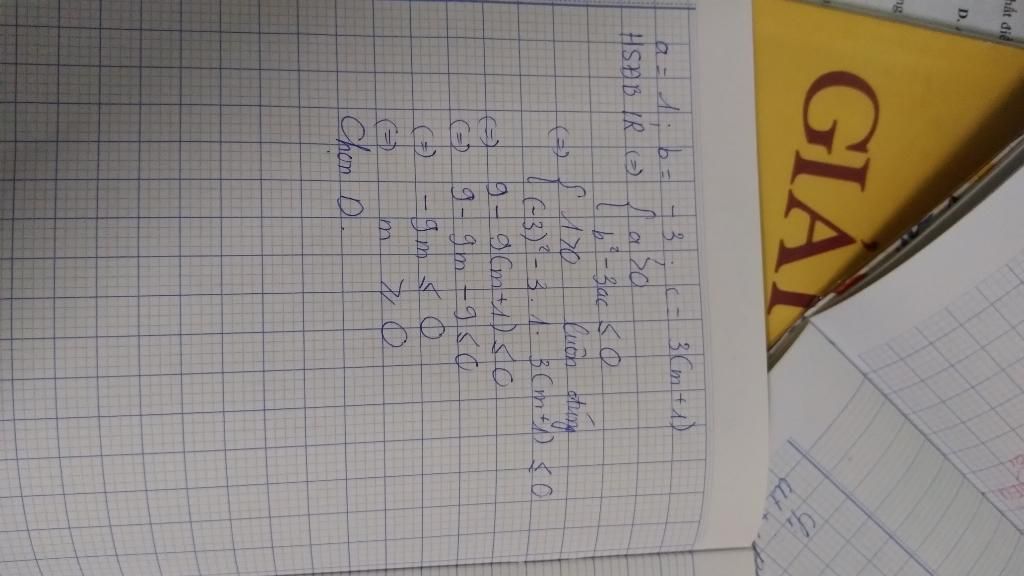 a = 1; b = -3; c = 3(m+1)
HSĐB IR (=) { a > 0
b² - 3ac ≤ 0
(=) { 1 > 0 luôn đúng
(-3)² - 3.1.3(m+1) ≤ 0
(=) 9 - 9(m+1) ≤ 0
(=) 9 - 9m - 9 ≤ 0
(=) -9m ≤ 0
(=) m ≥ 0
Chọn D.
GIẢI
D.